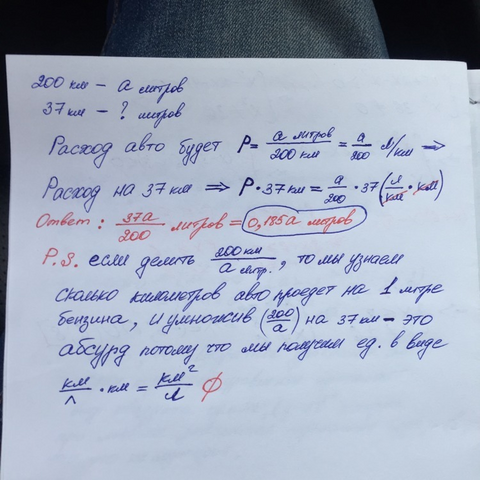 200 км – а литров
37 км – ? литров
Расход авто будет P = а литров / 200 км = а/200 л/км ⇒
Расход на 37 км ⇒ P · 37 км = а/200 · 37 (л/км · км)
Ответ: 37а/200 литров = 0,185а литров
P.S. если делить 200 км / а литр., то мы узнаем
сколько километров авто проедет на 1 литре
бензина, и умножив (200/а) на 37 км – это
абсурд потому что мы получим ед. в виде
км/л · км = км²/л ∅